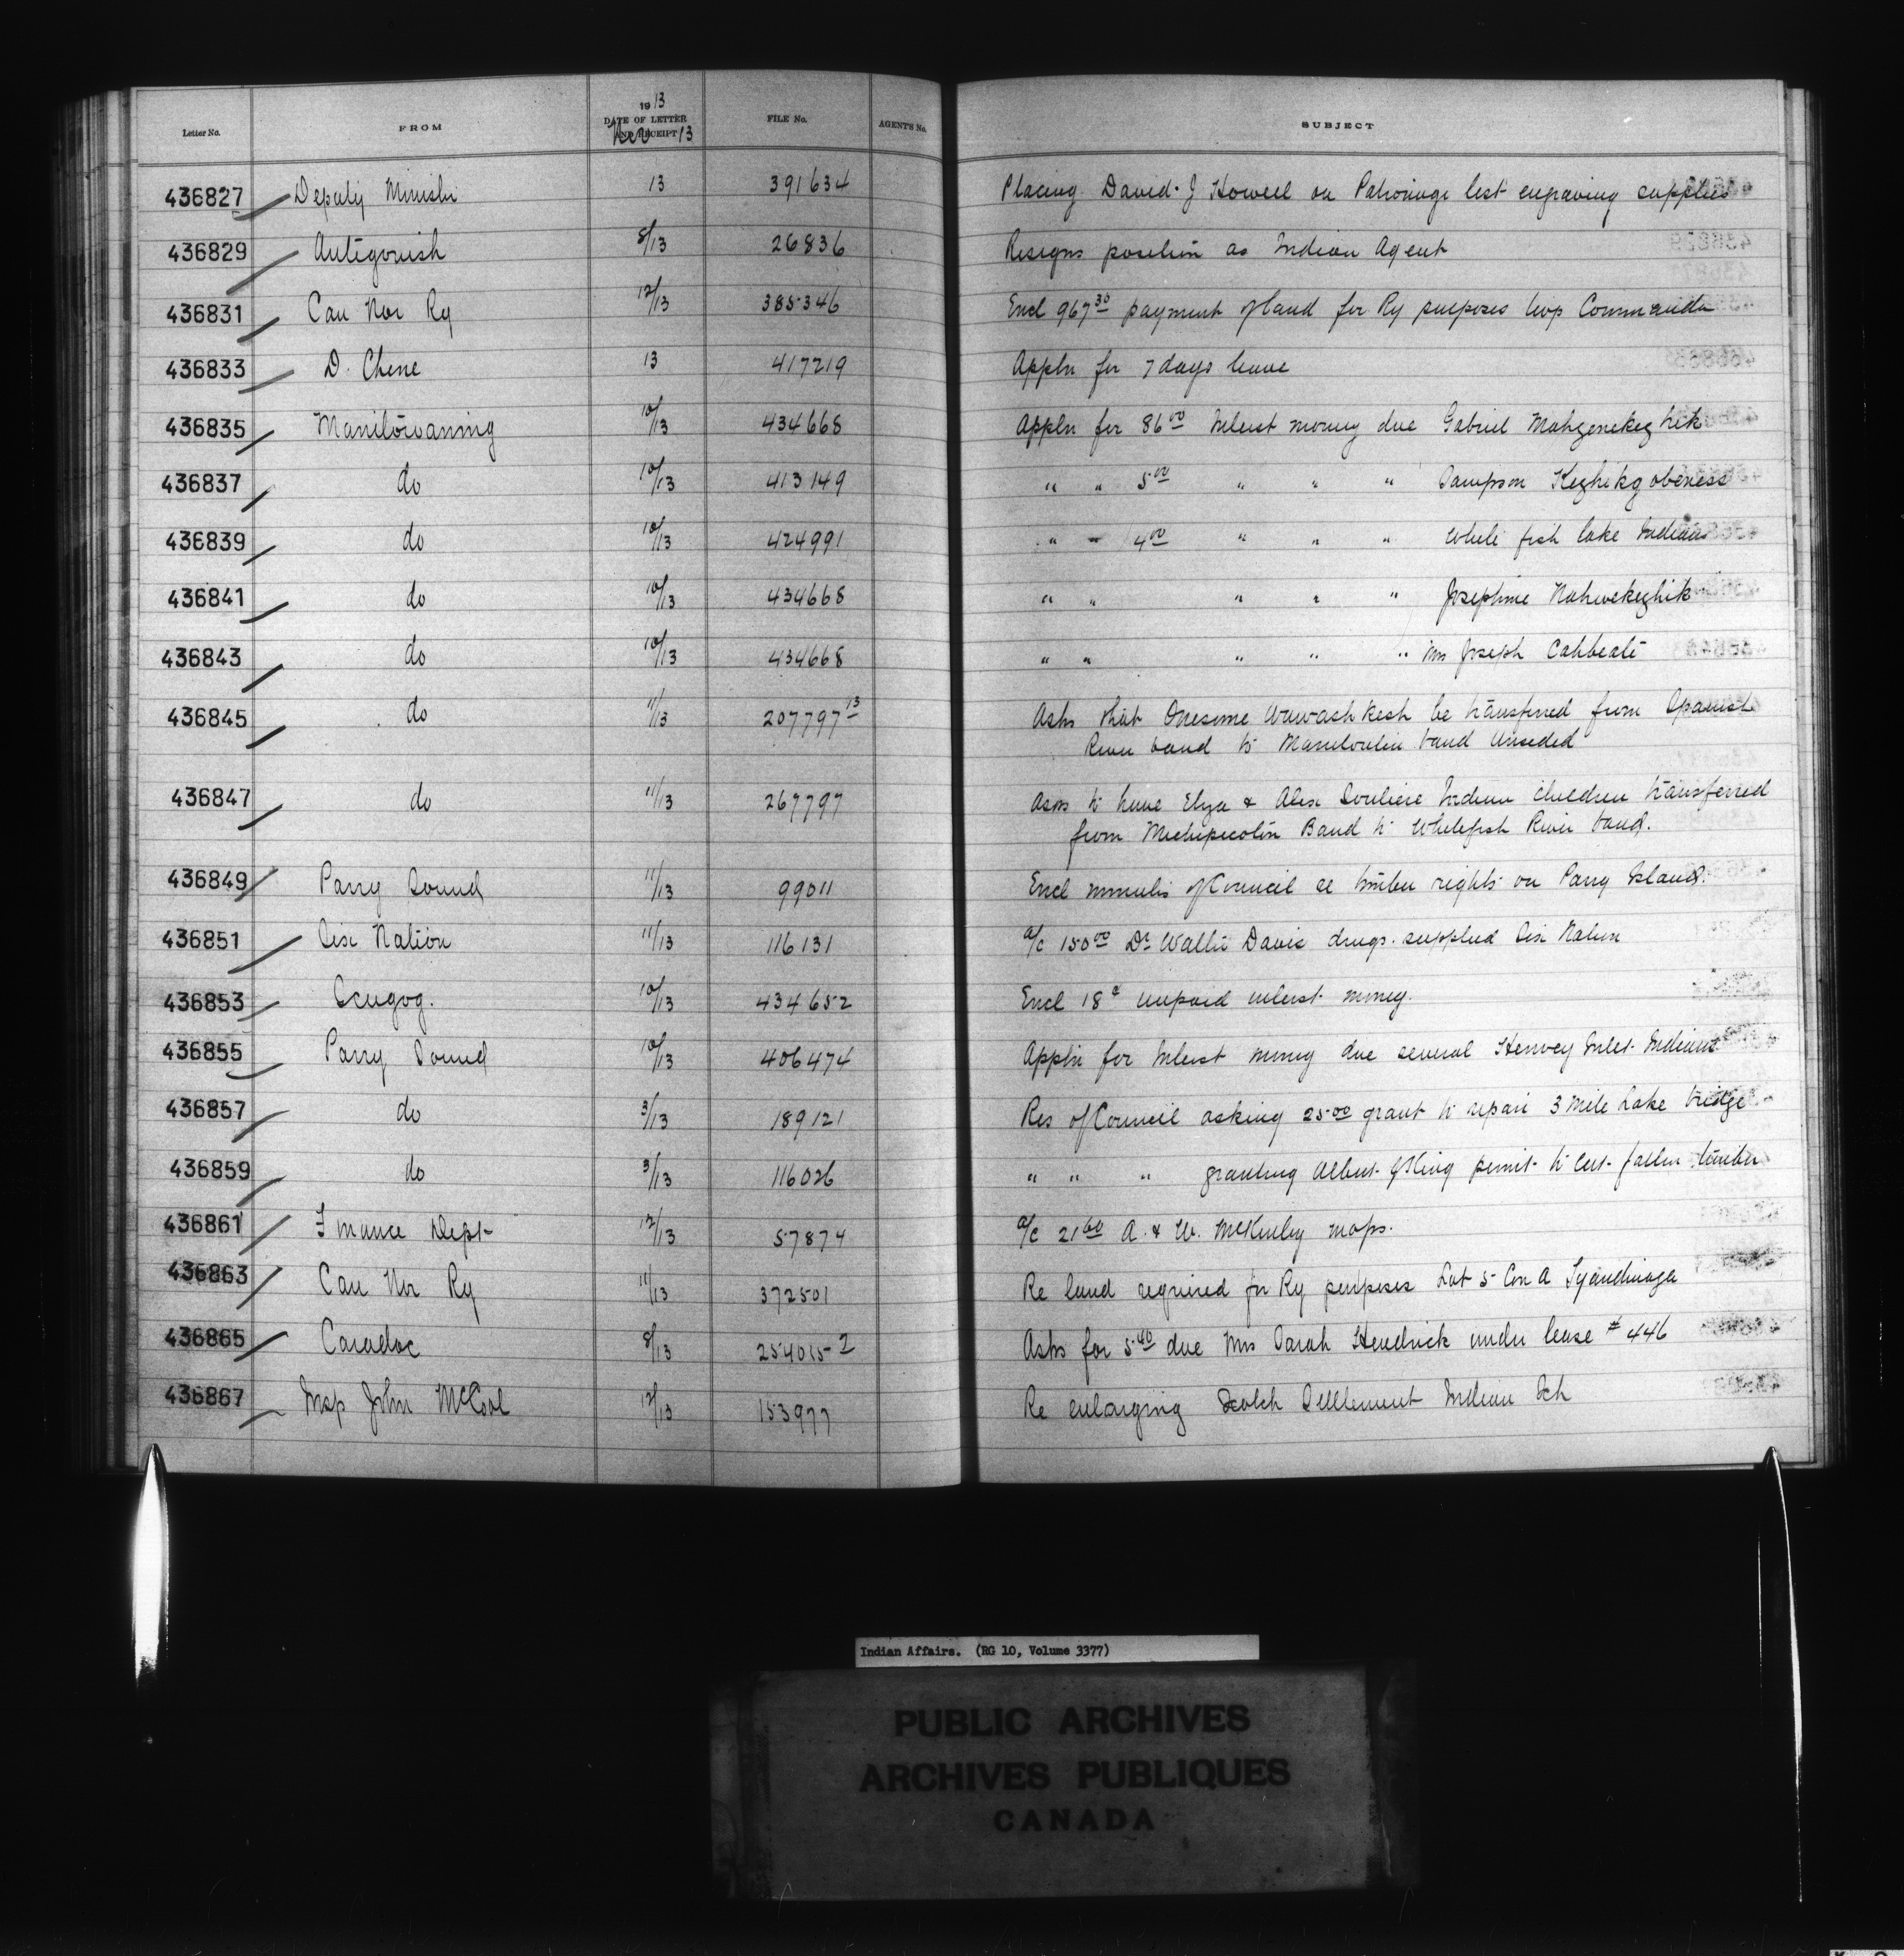 Letter No. FROM 1913 DATE OF LETTER AND RECEIPT Nov 13 FILE No. AGENT'S No. SUBJECT
436827 Deputy Minister 13 391634 Placing David J Howell on Patronage list engraving supplies
436829 Antigonish 8/13 26836 Resigns position as Indian Agent
436831 Can Nor Ry 12/13 385346 Encl 967.30 payment of land for Ry purposes twp Commanda
436833 D. Chene 13 417219 Appln for 7 days leave
436835 Manitowaning 10/13 434668 Appln for 86.00 Interest money due Gabriel
436837 do 10/13 413149 " " 5.00 " " " Sampson
436839 do 10/13 424991 " " 4.00 " " " White fish lake Indians
436841 do 10/13 434668 " " " " " Josephine Nahwekezhik
436843 do 10/13 434668 " " " " " Mrs Joseph
436845 do 11/13 207797 13 Asks that Onesime Wawashkesh be transferred from Spanish
River band to Manitoulin band Unceded
436847 do 11/13 267797 Asks to have Elza & Alex Souliere Indian children transferred
from Michipicoten Band to Whitefish River band.
436849 Parry Sound 11/13 99011 Encl minutes of Council re timber rights on Parry Island.
436851 Six Nation 11/13 116131 a/c 150.00 Dr Walter Davis drugs supplied Six Nation
436853 Scugog. 10/13 434652 Encl 18 unpaid interest money.
436855 Parry Sound 10/13 406474 Appln for Interest money due several Henvey Inlet Indians
436857 do 3/13 189121 Res of Council asking 25.00 grant to repair 3 Mile Lake bridge
436859 do 3/13 116026 " " " granting Albert G King permit to cut fallen timber
436861 Finance Dept 12/13 57874 a/c 21.60 A. & W. McKinley maps.
436863 Can Nor Ry 11/13 372501 Re land required for Ry purposes Lot 5 Con A Tyendinaga
436865 Caradoc 8/13 254015-2 Asks for 5.40 due Mrs Sarah Hendrick under lease # 446
436867 Insp John McCool 12/13 153977 Re enlarging Scotch Settlement Indian Sch
Indian Affairs. (RG 10, Volume 3377)
PUBLIC ARCHIVES
ARCHIVES PUBLIQUES
CANADA